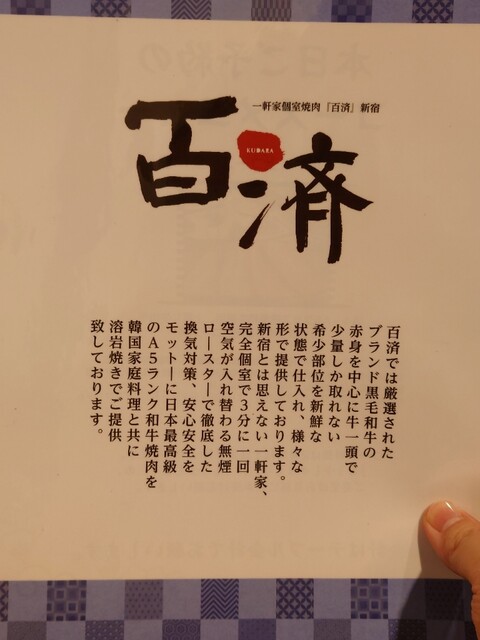 一軒家個室焼肉『百済』新宿
百済
KUDARA
百済では厳選された
ブランド黒毛和牛の
赤身を中心に牛一頭で
少量しか取れない
希少部位を新鮮な
状態で仕入れ、様々な
形で提供しております。
新宿とは思えない一軒家、
完全個室で3分に一回
空気が入れ替わる無煙
ロースターで徹底した
換気対策、安心安全を
モットーに日本最高級
のA5ランク和牛焼肉を
韓国家庭料理と共に
溶岩焼きでご提供
致しております。